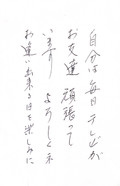 自分は毎日テレビが
お友達 頑張って
います よろしくネ
お逢い出来る日を楽しみに